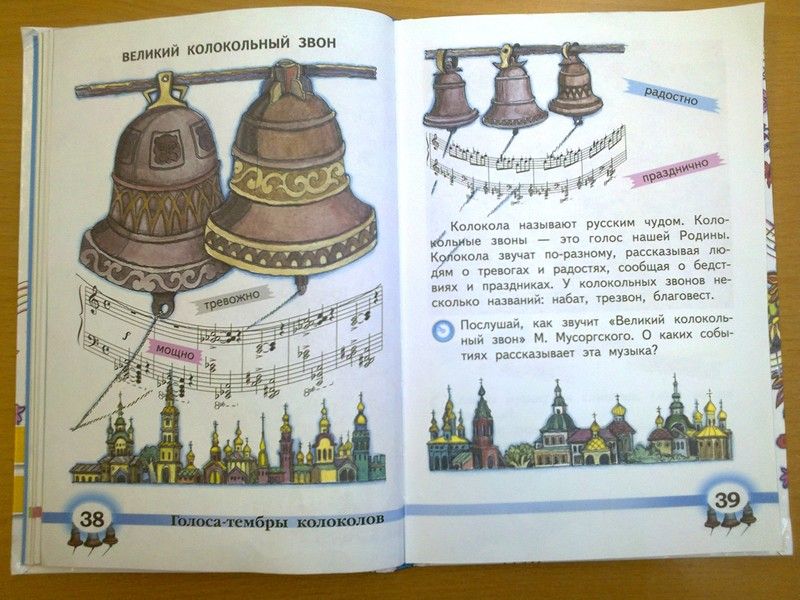 ВЕЛИКИЙ КОЛОКОЛЬНЫЙ ЗВОН
тревожно
f
мощно
38
Голоса-тембры колоколов
радостно
празднично
Колокола называют русским чудом. Коло-
кольные звоны — это голос нашей Родины.
Колокола звучат по-разному, рассказывая лю-
дям о тревогах и радостях, сообщая о бедст-
виях и праздниках. У колокольных звонов не-
сколько названий: набат, трезвон, благовест.
Послушай, как звучит «Великий колоколь-
ный звон» М. Мусоргского. О каких собы-
тиях рассказывает эта музыка?
39